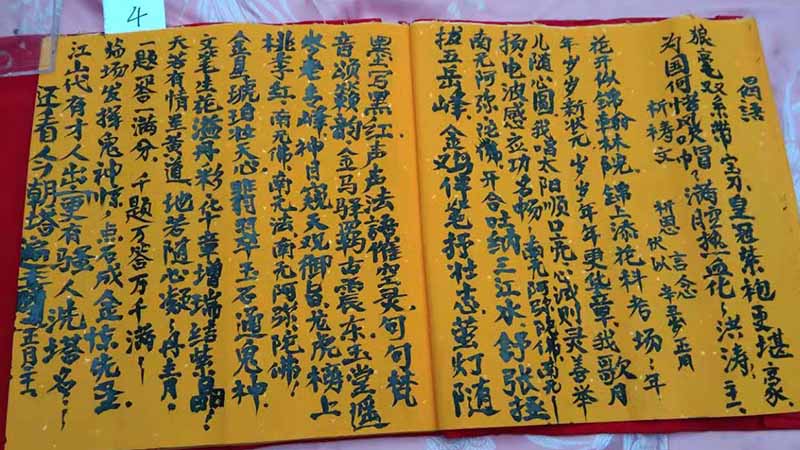 4
語
狼毫双系带、皇冠紫袍更堪豪、
为国何惜帽?满腔热血化~洪涛,二十一
祈祷文 祈恩 言念 伏以 辛丑正月
花开似锦翰林院、锦上添花科考场~年
年岁岁新状元,岁岁年年更华章,我歌月
儿随心圆,我唱太阳顺口亮,心诚则灵善举
扬,电波感应功名畅~南无阿弥陀佛南无~
南无阿弥陀佛~开合吐纳三江水、舒张挺
拔五岳峰、金鸡伴笔抒壮志、萤灯随
墨写黑红、声声法語催空灵、句句梵
音颂韵,金马驿羁古震东、玉堂遥
岑老专峰,神目窥天观御旨,龙虎榜上
桃李红、南无佛,南无法、南无阿弥陀佛!
金身琥珀壮天心,翡翠玉石通鬼神、
文笔生花溢丹彩,华章增瑞结紫晶~
天若有情呈黄道、地若随心凝~丹青月。
一题一答一满分,千题万答万千满~
临场发挥鬼神惊,点石成金惊先圣、
江山代有才人出,更有骚人洗塔名~
还看今朝塔 正月二十一